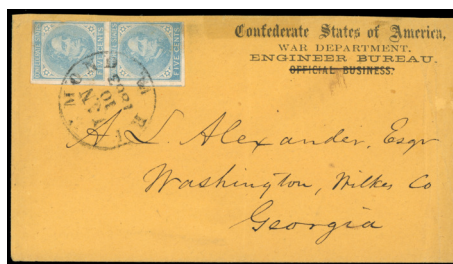 Confederate States of America,
WAR DEPARTMENT.
ENGINEER BUREAU.
OFFICIAL BUSINESS.
RICHMOND
JAN
10
A. L. Alexander, Esqr
Washington, Wilkes Co
Georgia